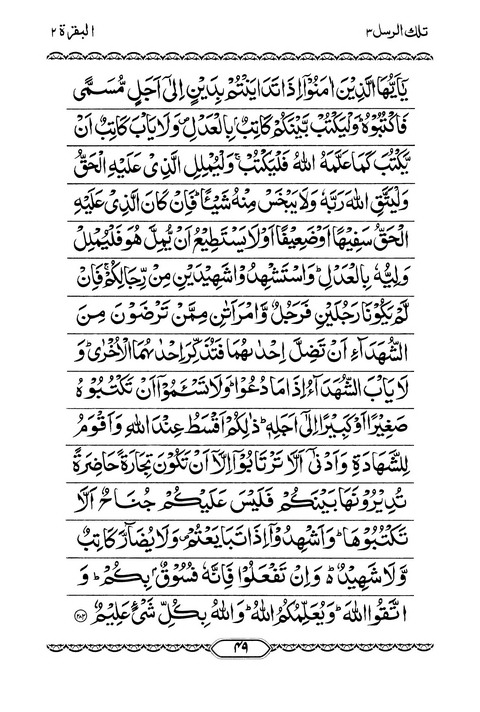 تلك الرسل ٣
البقرة ٢
يٰۤاَيُّهَا الَّذِيْنَ اٰمَنُوْۤا اِذَا تَدَايَنْتُمْ بِدَيْنٍ اِلٰۤى اَجَلٍ مُّسَمًّى
فَاكْتُبُوْهُ ؕ وَلْيَكْتُبْ بَّيْنَكُمْ كَاتِبٌۢ بِالْعَدْلِ ۪ وَلَا يَاْبَ كَاتِبٌ اَنْ
يَّكْتُبَ كَمَا عَلَّمَهُ اللّٰهُ فَلْيَكْتُبْ ۚ وَلْيُمْلِلِ الَّذِيْ عَلَيْهِ الْحَقُّ
وَلْيَتَّقِ اللّٰهَ رَبَّهٗ وَلَا يَبْخَسْ مِنْهُ شَيْـًٔا ؕ فَاِنْ كَانَ الَّذِيْ عَلَيْهِ
الْحَقُّ سَفِيْهًا اَوْ ضَعِيْفًا اَوْ لَا يَسْتَطِيْعُ اَنْ يُّمِلَّ هُوَ فَلْيُمْلِلْ
وَلِيُّهٗ بِالْعَدْلِ ؕ وَاسْتَشْهِدُوْا شَهِيْدَيْنِ مِنْ رِّجَالِكُمْ ۚ فَاِنْ
لَّمْ يَكُوْنَا رَجُلَيْنِ فَرَجُلٌ وَّامْرَاَتٰنِ مِمَّنْ تَرْضَوْنَ مِنَ
الشُّهَدَآءِ اَنْ تَضِلَّ اِحْدٰىهُمَا فَتُذَكِّرَ اِحْدٰىهُمَا الْاُخْرٰى ؕ وَ
لَا يَاْبَ الشُّهَدَآءُ اِذَا مَا دُعُوْا ؕ وَلَا تَسْـَٔمُوْۤا اَنْ تَكْتُبُوْهُ
صَغِيْرًا اَوْ كَبِيْرًا اِلٰۤى اَجَلِهٖ ؕ ذٰلِكُمْ اَقْسَطُ عِنْدَ اللّٰهِ وَاَقْوَمُ
لِلشَّهَادَةِ وَاَدْنٰۤى اَلَّا تَرْتَابُوْۤا اِلَّاۤ اَنْ تَكُوْنَ تِجَارَةً حَاضِرَةً
تُدِيْرُوْنَهَا بَيْنَكُمْ فَلَيْسَ عَلَيْكُمْ جُنَاحٌ اَلَّا
تَكْتُبُوْهَا ؕ وَاَشْهِدُوْۤا اِذَا تَبَايَعْتُمْ ۪ وَلَا يُضَآرَّ كَاتِبٌ
وَّلَا شَهِيْدٌ ؕ۬ وَاِنْ تَفْعَلُوْا فَاِنَّهٗ فُسُوْقٌۢ بِكُمْ ؕ وَ
اتَّقُوا اللّٰهَ ؕ وَيُعَلِّمُكُمُ اللّٰهُ ؕ وَاللّٰهُ بِكُلِّ شَيْءٍ عَلِيْمٌ ۝٢٨٢
٤٩